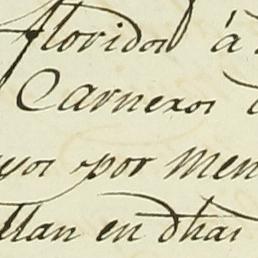 floridos á
Carneros
por men
llan en dhas